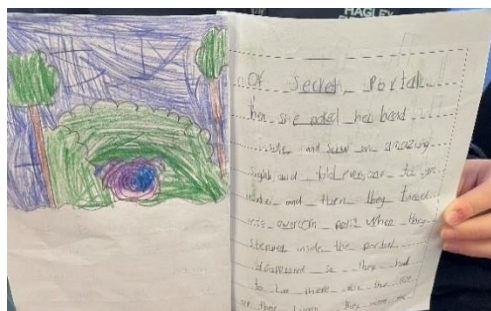 HAGLEY
of secret portal
then she poked her head
inside and saw an amazing
sight and told everyone to go
inside and then they turned
into when they
stepped inside the portal
disappeared so they had
to live there for the
of their lives they were